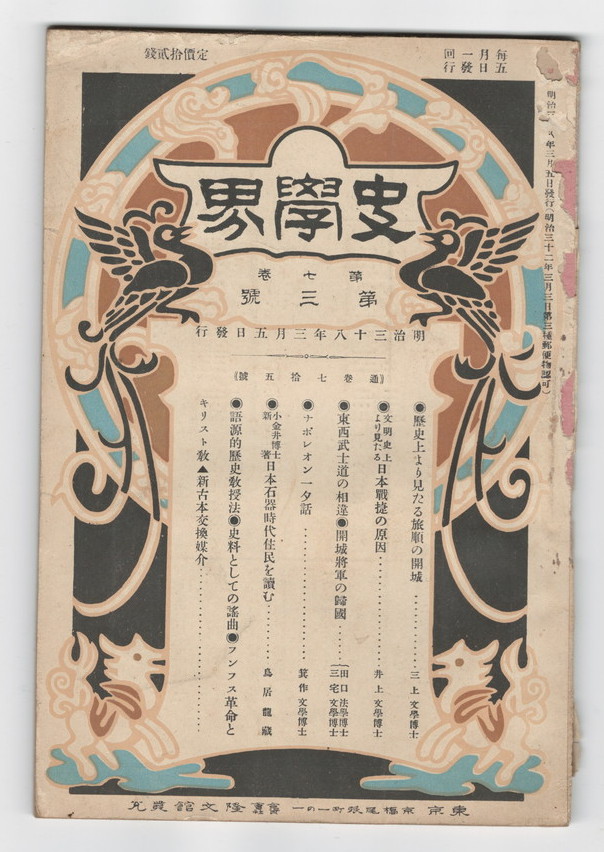 每月一回
五日發行
定價拾貳錢
年三月五日發行(明治三十二年三月三日第三種郵便物認可)
史學界
第七卷
第三號
明治三十八年三月五日發行
《通卷七拾五號》
●歷史上より見たる旅順の開城……………三上文學博士
●文明史上より見たる日本戰捷の原因……………井上文學博士
●東西武士道の相違●開城將軍の歸國……田口法學博士 三宅文學博士
●ナポレオン一夕話……………箕作文學博士
●小金井博士新著日本石器時代住民を讀む…………鳥居龍藏
●語源的歷史敎授法●史料としての謠曲●フンフス革命と
キリスト敎▲新古本交換媒介……………
東京京橋尾張町一の一 合資會社 隆文館發兌